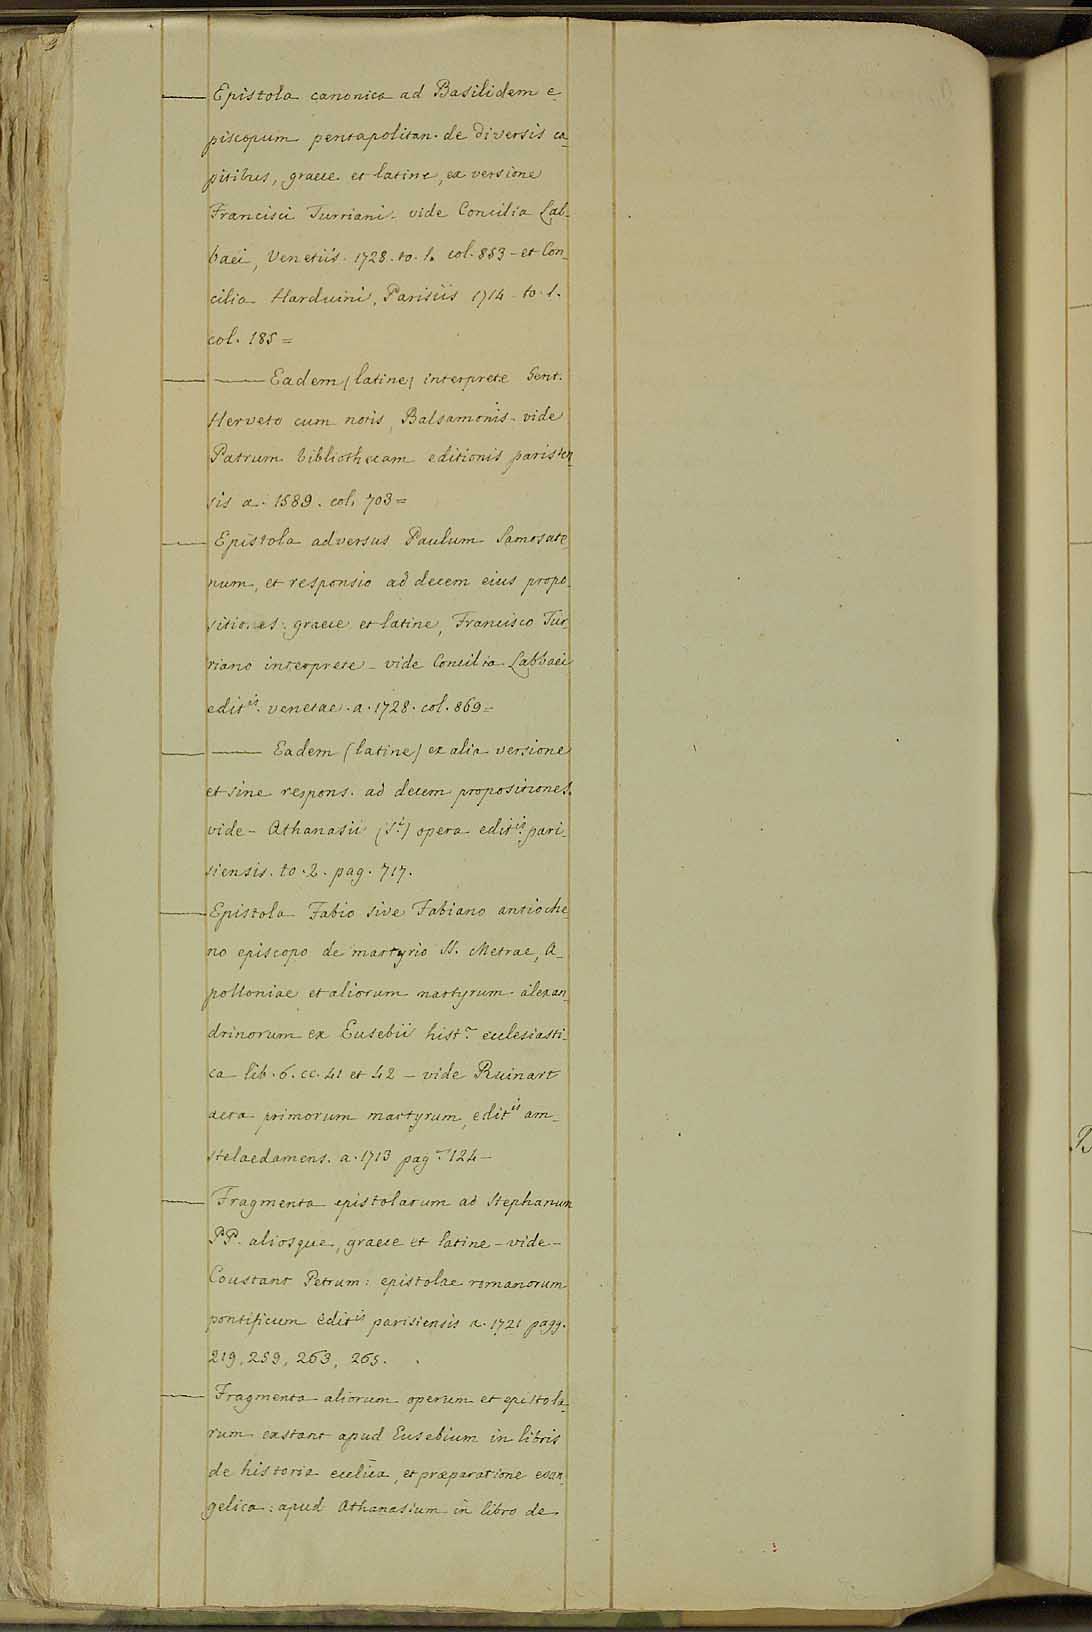 —— Epistola canonica ad Basilidem e-
piscopum pentapolitan. de diversis ca-
pitibus, graece et latine, ex versione
Francisci Turriani. vide Concilia Lab-
baei, Venetiis. 1728. to. 1. col. 853 - et Con-
cilia Harduini, Parisiis 1714. to. 1.
col. 185 =
—— —— Eadem (latine) interprete Gent.
Herveto cum notis, Balsamonis. vide
Patrum bibliothecam editionis parisien
sis a. 1589. col. 703 =
—— Epistola adversus Paulum Samosate
num, et responsio ad decem eius propo-
sitiones: graece et latine, Francisco Tur-
riano interprete - vide Concilia Labbaei
edit.is venetae. a. 1728. col. 869 =
—— —— Eadem (latine) ex alia versione
et sine respons. ad decem propositiones.
vide - Athanasii (S.i) opera edit.is pari-
siensis. to. 2. pag. 717.
—— Epistola Fabio sive Fabiano antioche-
no episcopo de martyrio SS. Metrae, A-
polloniae et aliorum martyrum alexan-
drinorum ex Eusebii hist.a ecclesiasti-
ca lib. 6. cc. 41 et 42 - vide Ruinart
acta primorum martyrum, edit.is am-
stelaedamens. a. 1713 pag. 124 -
—— Fragmenta epistolarum ad Stephanum
PP. aliosque, graece et latine - vide -
Coustant Petrum: epistolae romanorum
pontificum edit.is parisiensis a. 1721 pagg.
219, 259, 263, 265.
—— Fragmenta aliorum operum et epistola-
rum extant apud Eusebium in libris
de historia ecclīca, et præparatione evan-
gelica: apud Athanasium in libro de